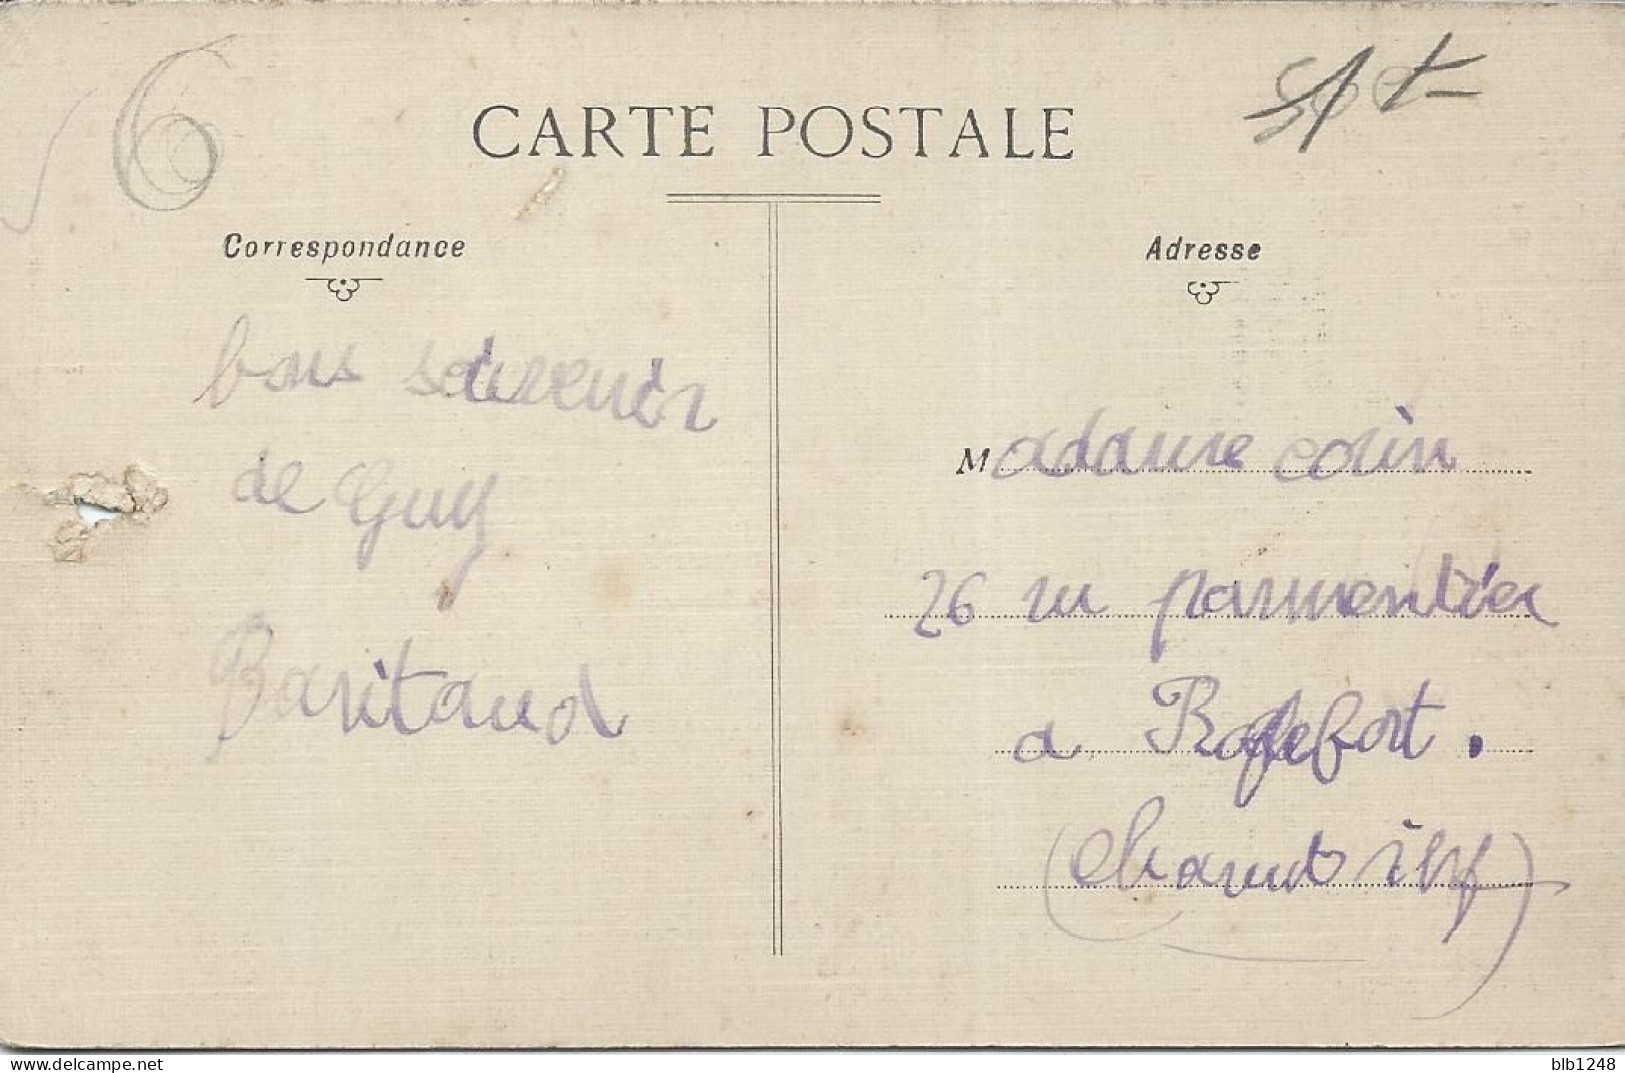 6
CARTE POSTALE
Correspondance
Adresse
bons souvenir
de Guy
Baritaud
Madame colin
26 ru parmentier
a Rochefort.
(Charent inf)
delcampe.net
blb1248